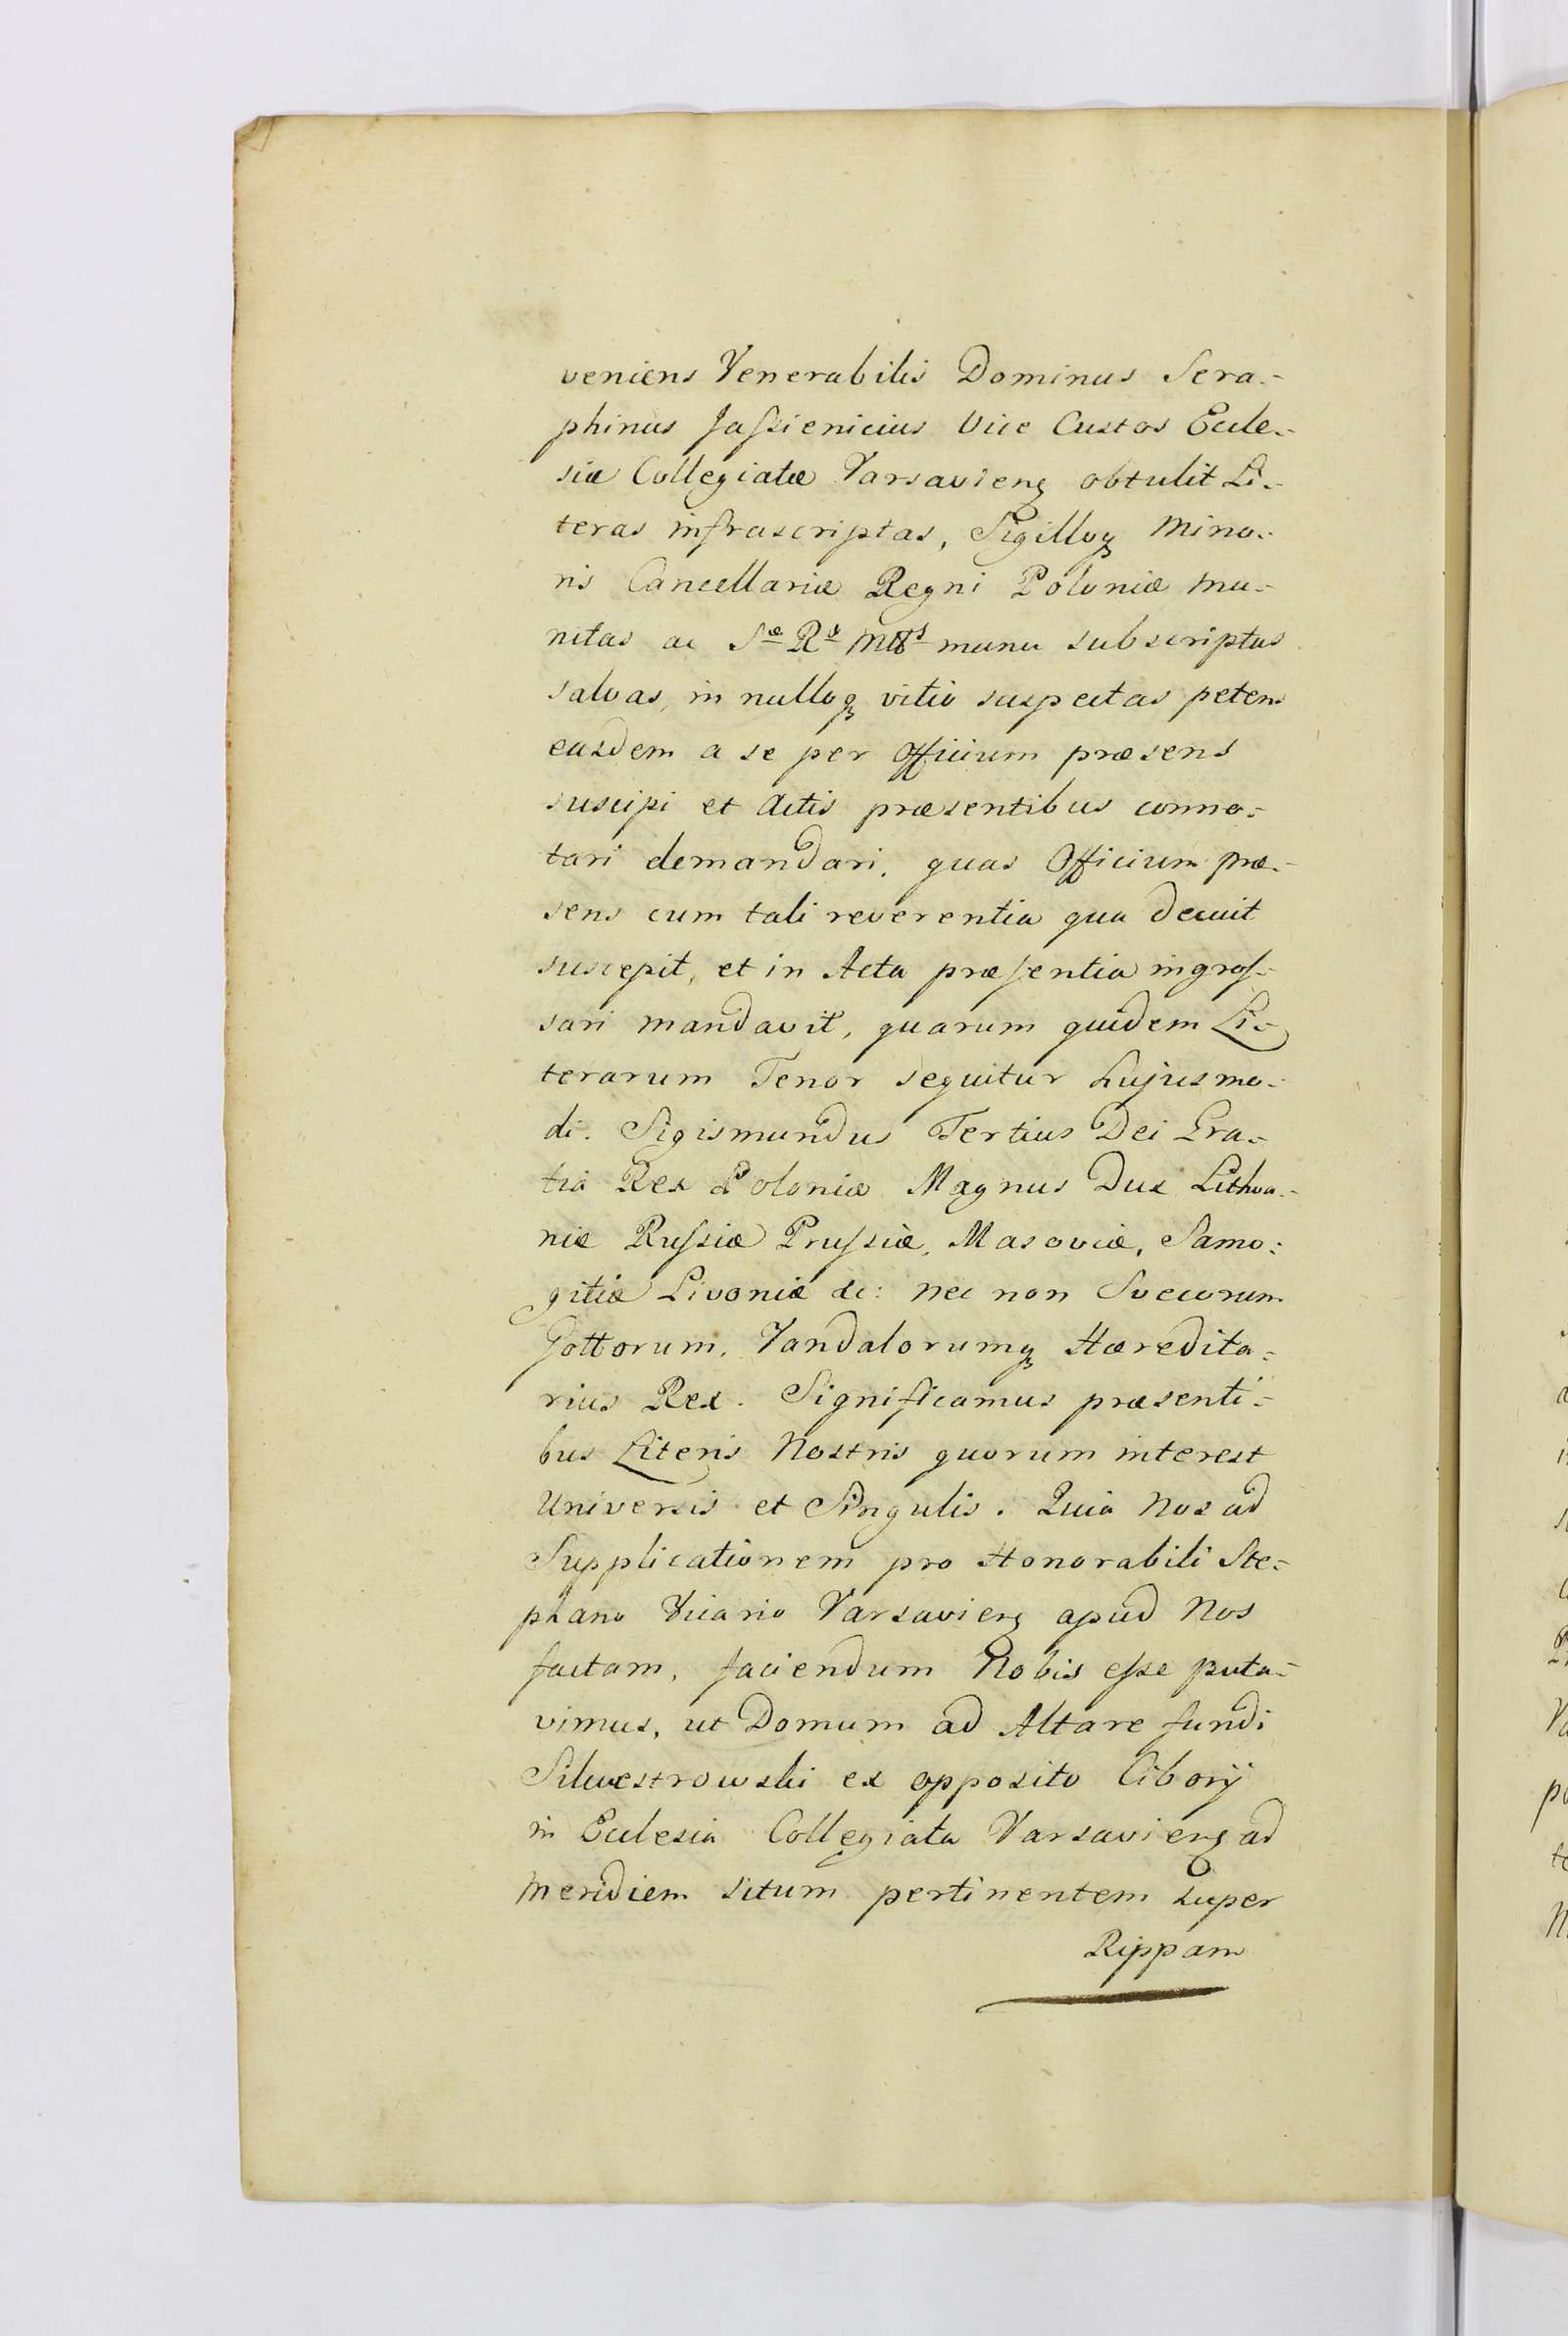 veniens Venerabilis Dominus Sera=
phinus Jaſsienicius Vice Custos Eccle=
siæ Collegiatæ Varsavienꝫ obtulit Li=
teras infrascriptas, Sigilloqꝫ Mino=
ris Cancellariæ Regni Poloniæ mu=
nitas ac Sæ Ræ Mttis manu subscriptas
salvas, in nulloqꝫ vitio suspectas petens
easdem a se per Officium præsens
suscipi et Actis præsentibus conno=
tari demandari, quas Officium præ=
sens cum tali reverentia qua decuit
suscepit, et in Acta præſentia ingroſ=
sari mandavit, quarum quidem Li=
terarum Tenor sequitur hujusmo=
di. Sigismundus Tertius Dei Gra=
tia Rex Poloniæ Magnus Dux Lithva=
niæ Ruſsiæ Pruſsiæ, Masoviæ, Samo=
gitiæ Livoniæ &c: nec non Svecorum
Gottorum, Vandalorumqꝫ Hæredita=
rius Rex. Significamus præsenti=
bus Literis Nostris quorum interest
Universis et Singulis. Quia Nos ad
Supplicationem pro Honorabili Ste=
phano Vicario Varsavienꝫ apud Nos
factam, faciendum Nobis eſse puta=
vimus, ut Domum ad Altare fundi
Silvestrowski ex opposito Ciborij
in Ecclesia Collegiata Varsavienꝫ ad
Meridiem situm pertinentem super
Rippam